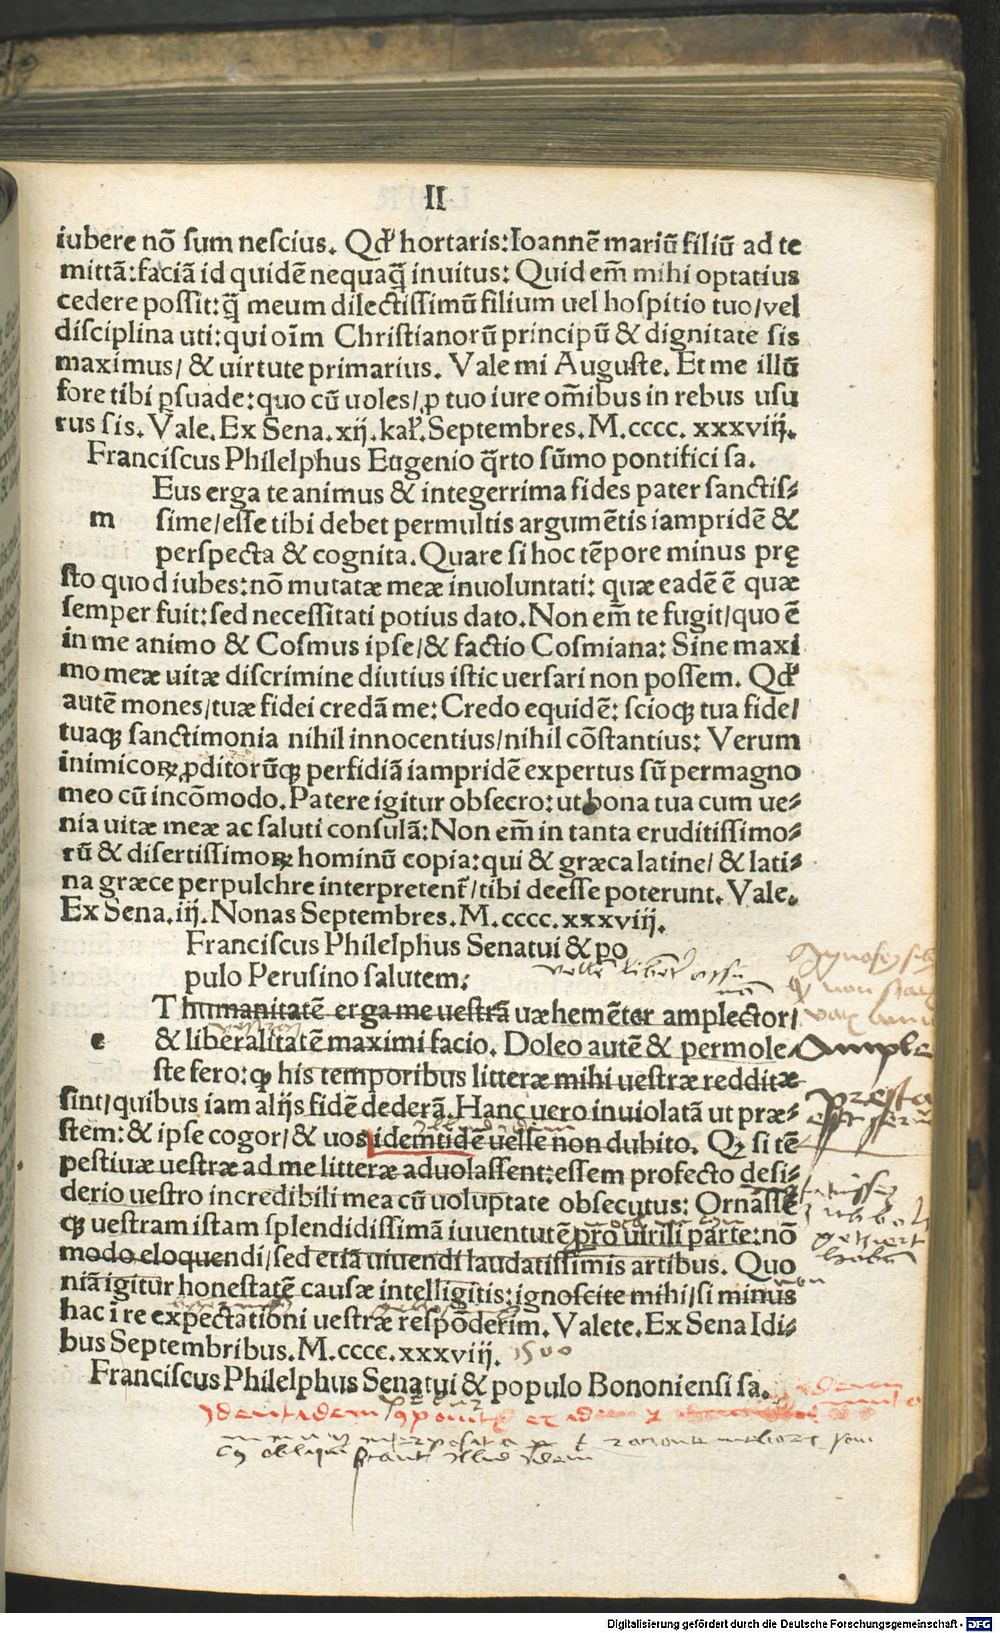 II
iubere nõ sum nescius. Qđ hortaris: Ioannẽ mariũ filiũ ad te
mittã: faciã id quidẽ nequaq̃ inuitus: Quid em̃ mihi optatius
cedere possit: q̃ meum dilectissimũ filium uel hospitio tuo/vel
disciplina uti: qui oĩm Christianorũ principũ & dignitate sis
maximus/ & uirtute primarius. Vale mi Auguste. Et me illũ
fore tibi ꝑsuade: quo cũ uoles/ ꝓ tuo iure om̃ibus in rebus usu
rus sis. Vale. Ex Sena. xij. kal'. Septembres. M. cccc. xxxviij.
Franciscus Philelphus Eugenio q̃rto sũmo pontifici sa.
Eus erga te animus & integerrima fides pater sanctis⸗
m sime/esse tibi debet permultis argumẽtis iampridẽ &
perspecta & cognita. Quare si hoc tẽpore minus prę
sto quod iubes: nõ mutatæ meæ inuoluntati: quæ eadẽ ẽ quæ
semper fuit: sed necessitati potius dato. Non em̃ te fugit/quo ẽ
in me animo & Cosmus ipse/& factio Cosmiana: Sine maxi
mo meæ uitæ discrimine diutius istic uersari non possem. Qđ
autẽ mones/tuæ fidei credã me: Credo equidẽ: scioqꝫ tua fide/
tuaqꝫ sanctimonia nihil innocentius/nihil cõstantius: Verum
inimicoꝝ ꝓditorũqꝫ perfidiã iampridẽ expertus sũ permagno
meo cũ incõmodo. Patere igitur obsecro: ut bona tua cum ue⸗
nia uitæ meæ ac saluti consulã: Non em̃ in tanta eruditissimo⸗
rũ & disertissimoꝝ hominũ copia: qui & græca latine/ & lati⸗
na græce perpulchre interpretent̃/tibi deesse poterunt. Vale.
Ex Sena. iij. Nonas Septembres. M. cccc. xxxviij.
Franciscus Philelphus Senatui & po
pulo Perusino salutem:
T humanitatẽ erga me uestrã uæhemẽter amplector/
e & liberalitatẽ maximi facio. Doleo autẽ & permole⸗
ste fero: qꝫ his temporibus litteræ mihi uestræ redditæ
sint/quibus iam alijs fidẽ dederã. Hanc uero inuiolatã ut præ⸗
stem: & ipse cogor/& uos idemtidẽ uelle non dubito. Qꝫ si tẽ
pestiuæ uestræ ad me litteræ aduolassent: essem profecto desi⸗
derio uestro incredibili mea cũ uoluptate obsecutus: Ornasse
qꝫ uestram istam splendidissimã iuuentutẽ pro uirili parte: nõ
modo eloquendi/sed etiã uiuendi laudatissimis artibus. Quo
niã igitur honestatẽ causæ intelligitis: ignoscite mihi/si minus
non
hac ĩ re expectationi uestræ respõderim. Valete. Ex Sena Idi⸗
bus Septembribus. M. cccc. xxxviij. 1500
Franciscus Philelphus Senatui & populo Bononiensi sa.
Digitalisierung gefördert durch die Deutsche Forschungsgemeinschaft - DFG